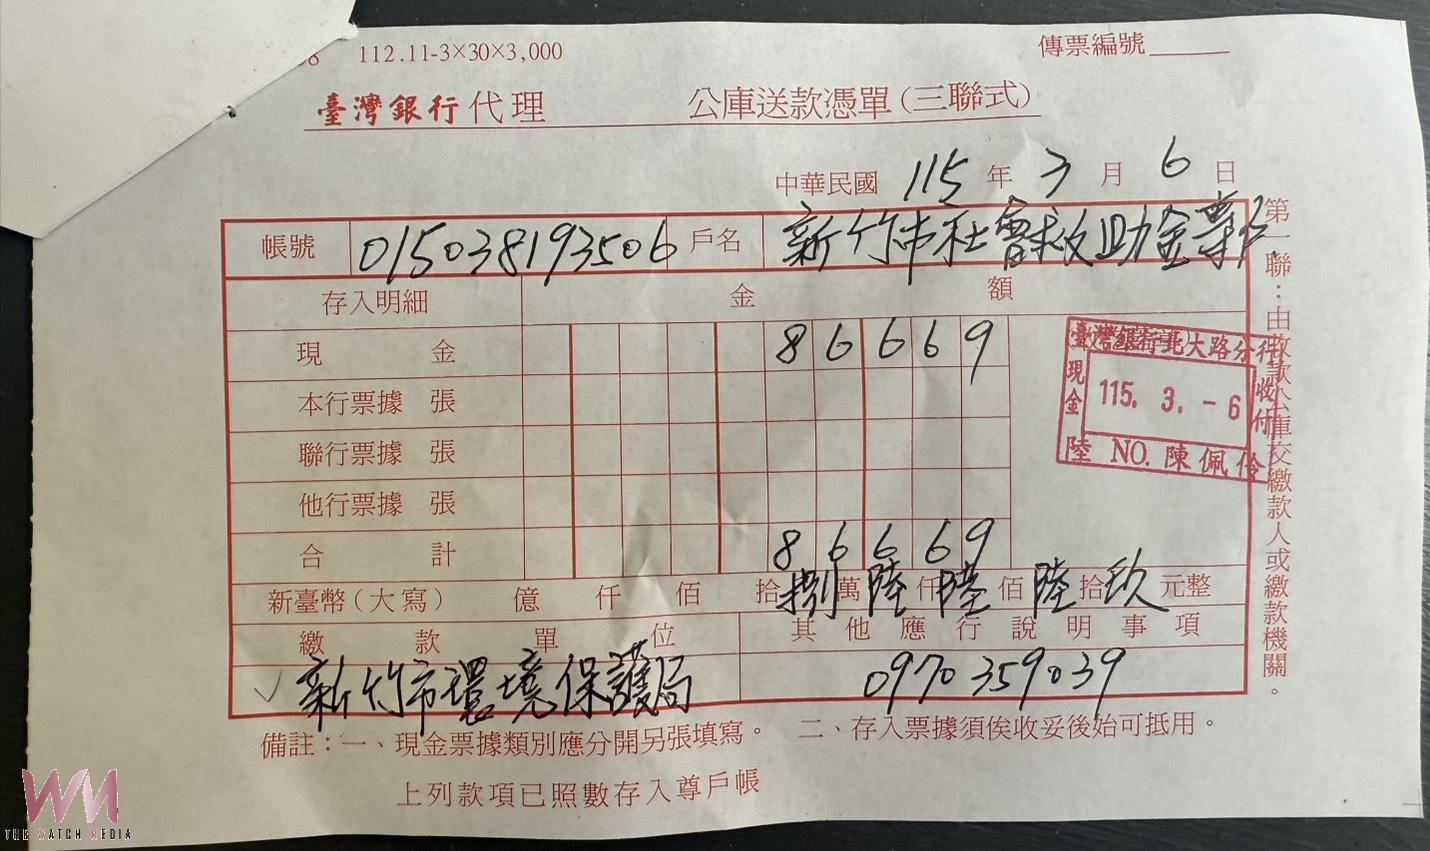 112.11-3×30×3,000
傳票編號
臺灣銀行代理 公庫送款憑單(三聯式)
中華民國 115 年 3 月 6 日
帳號 015038193506 戶名 新竹市社會救助金專戶
存入明細 金額
現金 86669
本行票據 張
聯行票據 張
他行票據 張
合計 86669
新臺幣(大寫) 億 仟 佰 拾捌萬陸仟陸佰陸拾玖元整
繳款單位 其他應行說明事項
✓新竹市環境保護局 0970359039
備註:一、現金票據類別應分開另張填寫。 二、存入票據須俟收妥後始可抵用。
上列款項已照數存入尊戶帳
臺灣銀行北大路分行
現金
115. 3. -6
收付
陸 NO. 陳佩伶
第一聯:由收款公庫交繳款人或繳款機關。
WM
THE WATCH MEDIA